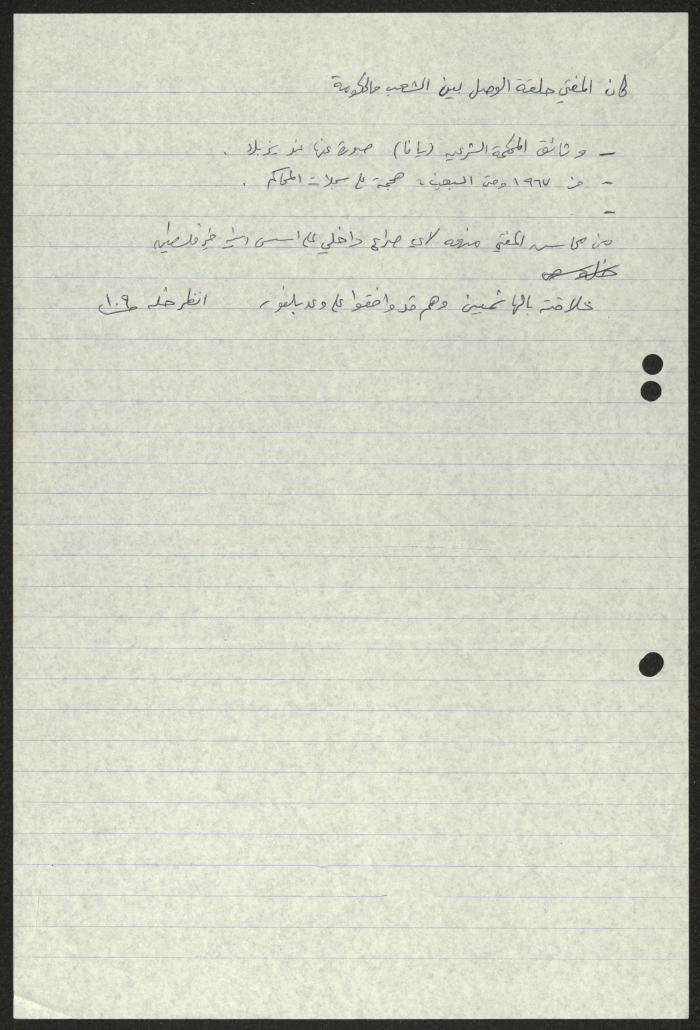 كان المفتي حلقة الوصل بين الشعب والحكومة
- وثائق المحكمة الشرعية (يافا) صورة عنها عند يزبك .
- من ١٩٦٧ وحتى السبعينات هجمة على سجلات المحاكم .
-
من محاسن المفتي منعه لاي صراع داخلي على اساس في فلسطين
خلافته بالهاشمين وهم قد وافقوا على وعد بلفور انظر خله ١٠٩